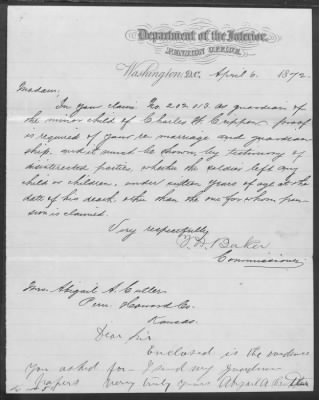 Department of the Interior,
PENSION OFFICE,
Washington, D.C. April 6. 1872.
Madam:
In your claim No. 202.013. as guardian of
the minor child of Charles H. Cappan, proof
is required of your re marriage and guardian
ship, and it must be shown by testimony of
disinterested parties, whether the soldier left any
child or children, under sixteen years of age at the
date of his death, other than the one for whom pen
sion is claimed.
Very respectfully
Baker
Commissioner
Mrs. Abigail A. Cutler
Peru Howard Co.
Kansas.
Dear Sir
Enclosed is the evidence
you asked for I send my guardian
papers very truly yours Abigail A.